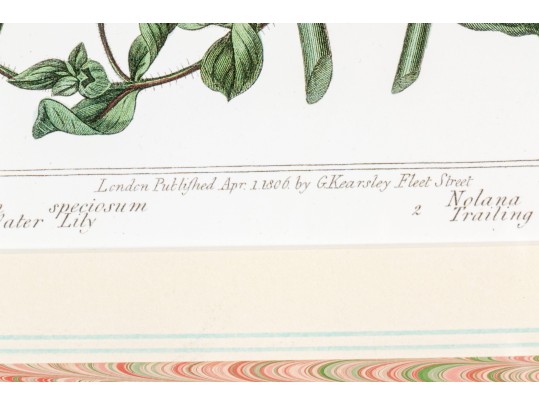 London Published Apr. 1. 1806. by G. Kearsley Fleet Street
speciosum 2 Nolana
Water Lily Trailing